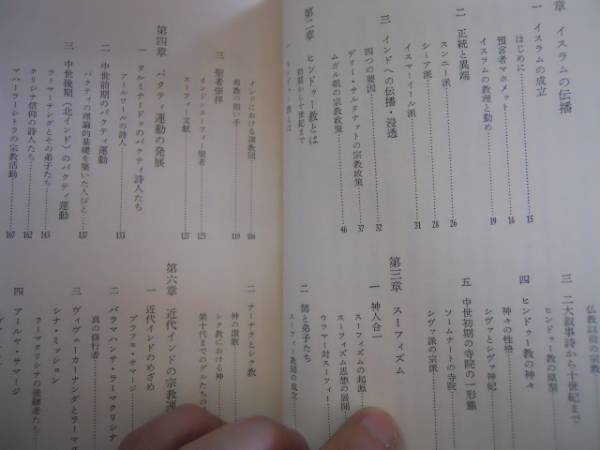 章 イスラムの伝播
一 イスラムの成立
はじめに 15
預言者マホメット 16
イスラムの教理と勤め 19
二 正統と異端
スンニー派 26
シーア派 28
イスマーイール派 31
三 インドへの伝播・浸透 32
四つの要因
デリー・サルタナットの宗教政策 37
ムガル朝の宗教政策 46
第二章 ヒンドゥー教とは
仏教以前の宗教
ヒンドゥー教の原型
三 二大叙事詩から十世紀まで
四 ヒンドゥー教の神々
神々の性格
シヴァとシヴァ神妃
五 中世初期の寺院の一形態
ソームナートの寺院
シヴァ派の宗派
第三章 スーフィズム
一 神人合一
スーフィズムの起源
スーフィズム思想の展開
ウラマー対スーフィー
二 師と弟子たち
インドにおける諸教団 106
布教の担い手 119
三 聖者崇拝
インドのスーフィー聖者 125
スーフィー文献 127
第四章 バクティ運動の発展
一 タルミナードゥのバクティ詩人たち
アールワールの詩人 133
二 中世前期のバクティ運動
バクティの理論的基礎を築いた人びと 137
三 中世後期(北インド)のバクティ運動
ラーマーナンダとその弟子たち 143
クリシナ信仰の詩人たち 162
マハーラーシトラの宗教活動 167
二 ナーナクとシク教
神の讃歌
シク教における神
第十代までのグルたちの
第六章 近代インドの宗教運
一 近代インドのめざめ
ブラフモ・サマージ
二 パラマハンサ・ラーマクリシナ
真の修行者
三 ヴィヴェーカーナンダとラーマク
シナ・ミッション
ラーマクリシナの後継者たち
四 アールヤ・サマージ